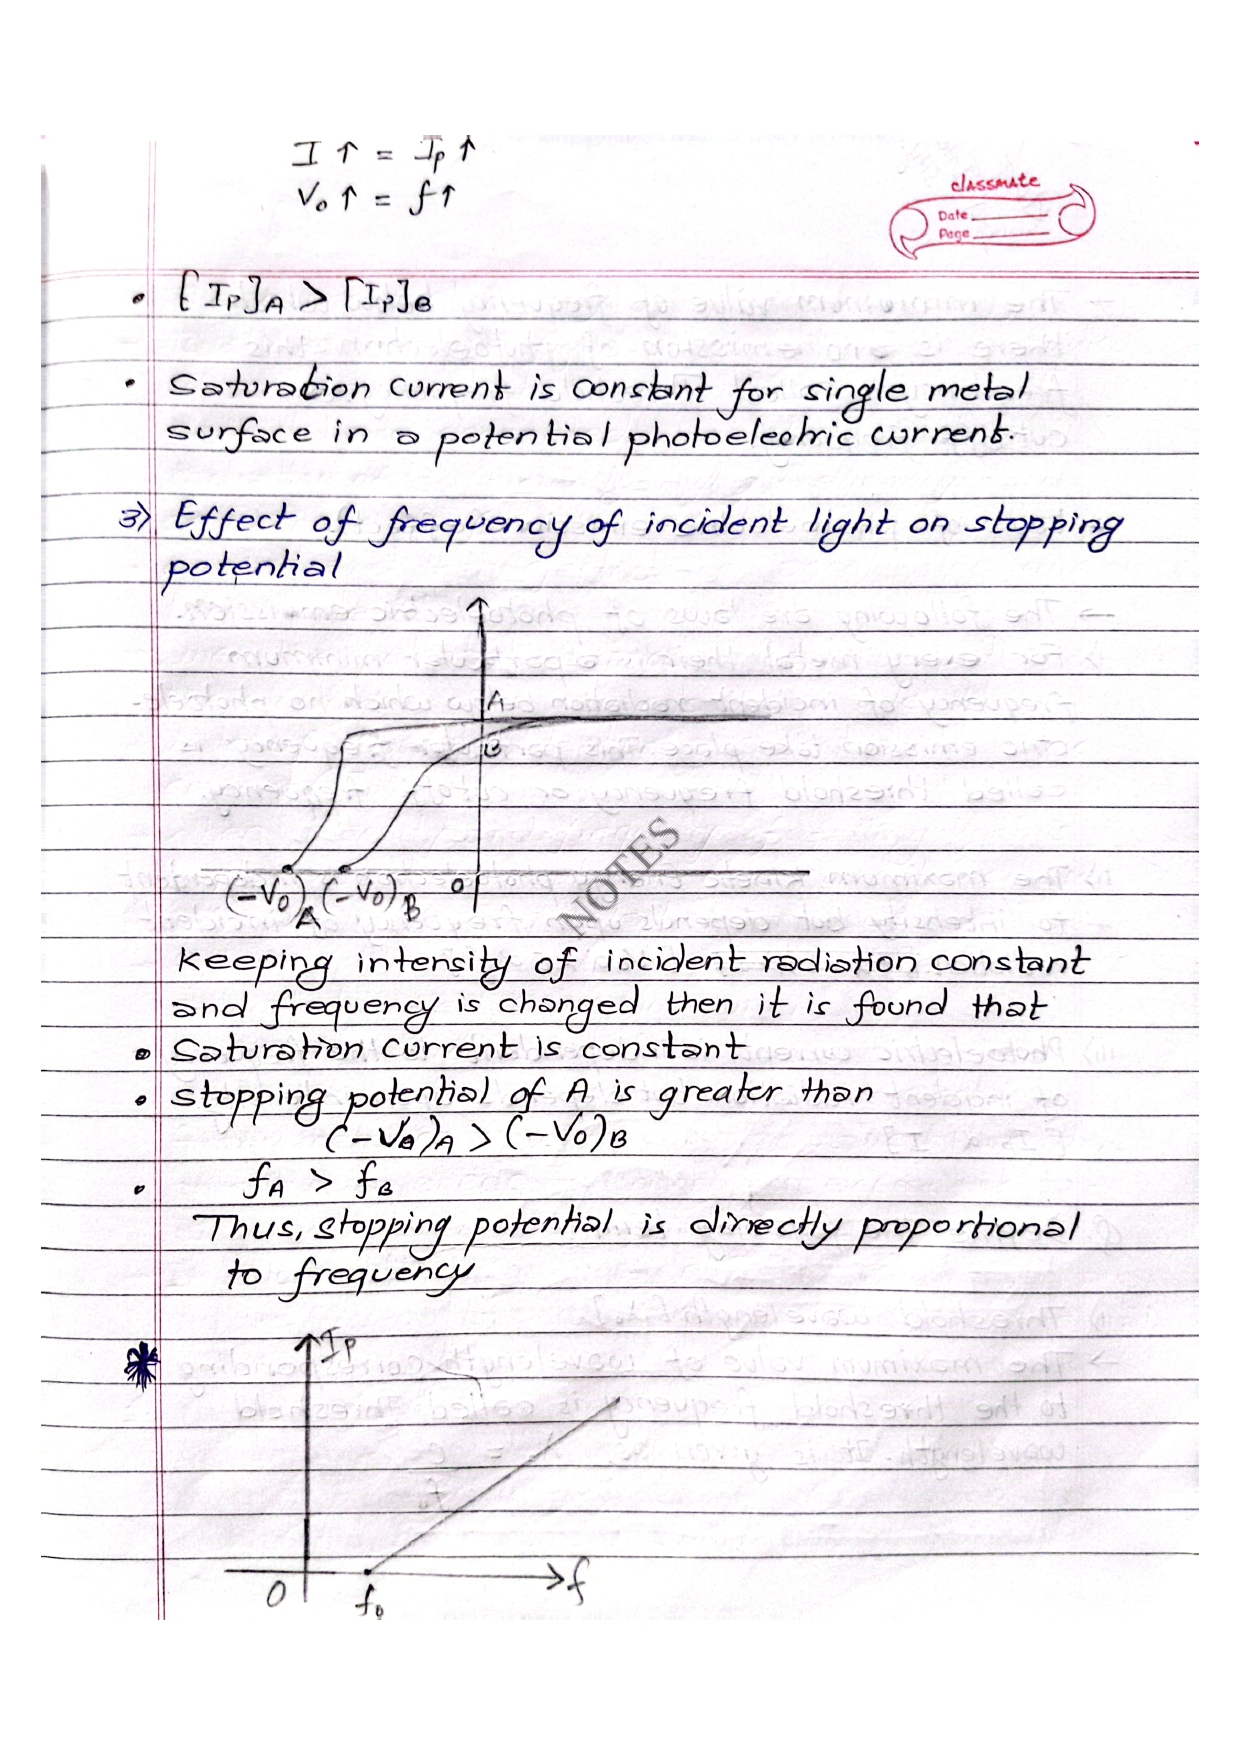 I ↑ = Ip ↑
V₀ ↑ = f ↑
classmate
Date
Page
• [Ip]A > [Ip]B
• Saturation current is constant for single metal
surface in a potential photoelectric current.
3) Effect of frequency of incident light on stopping
potential
A
B
(-V₀)A (-V₀)B O
NOTES
Keeping intensity of incident radiation constant
and frequency is changed then it is found that
• Saturation current is constant
• stopping potential of A is greater than
(-V₀)A > (-V₀)B
• fA > fB
Thus, stopping potential is dirrectly proportional
to frequency
Ip
O f₀ f